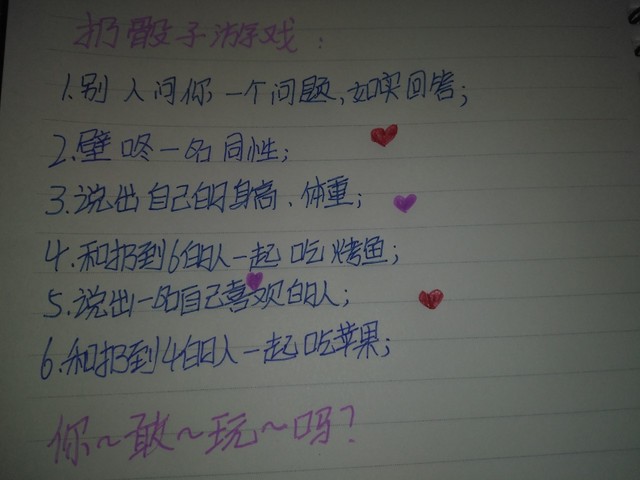 扔骰子游戏:
1.别人问你一个问题,如实回答;
2.壁咚一名同性;
3.说出自己的身高、体重;
4.和扔到6的人一起吃烤鱼;
5.说出一名自己喜欢的人;
6.和扔到4的人一起吃苹果;
你~敢~玩~吗?